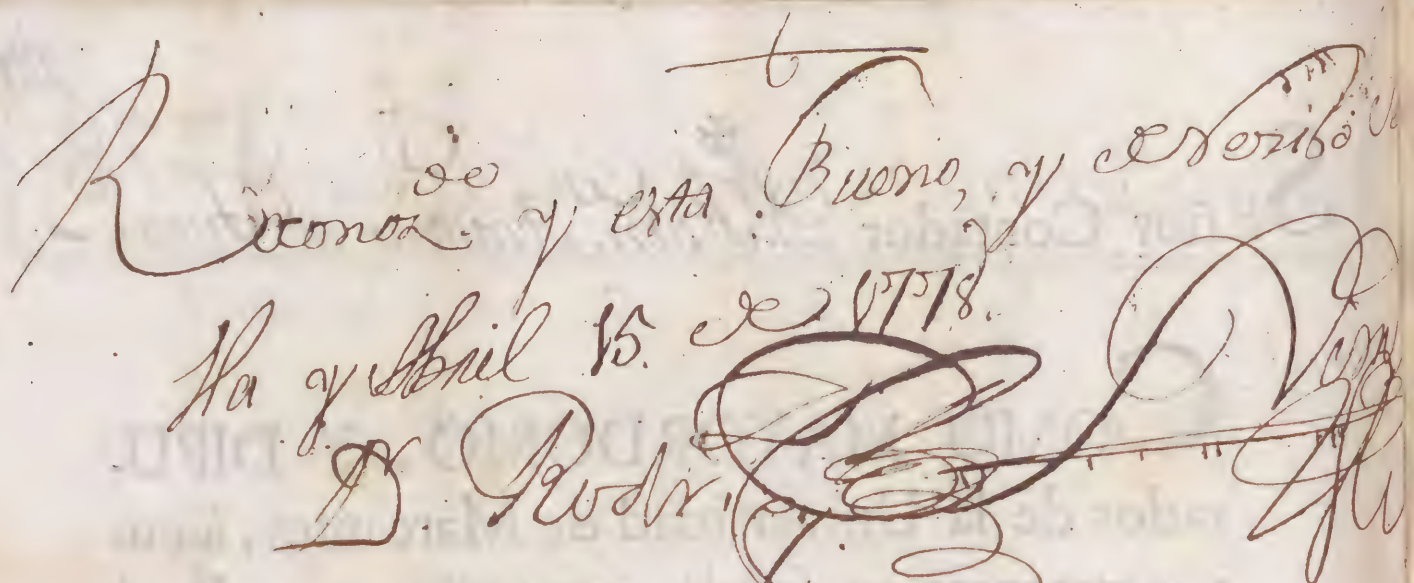 Reconoz.do y esta Bueno, y se recibò
Ha y Abril 15. de 1778.
D. Rodr.